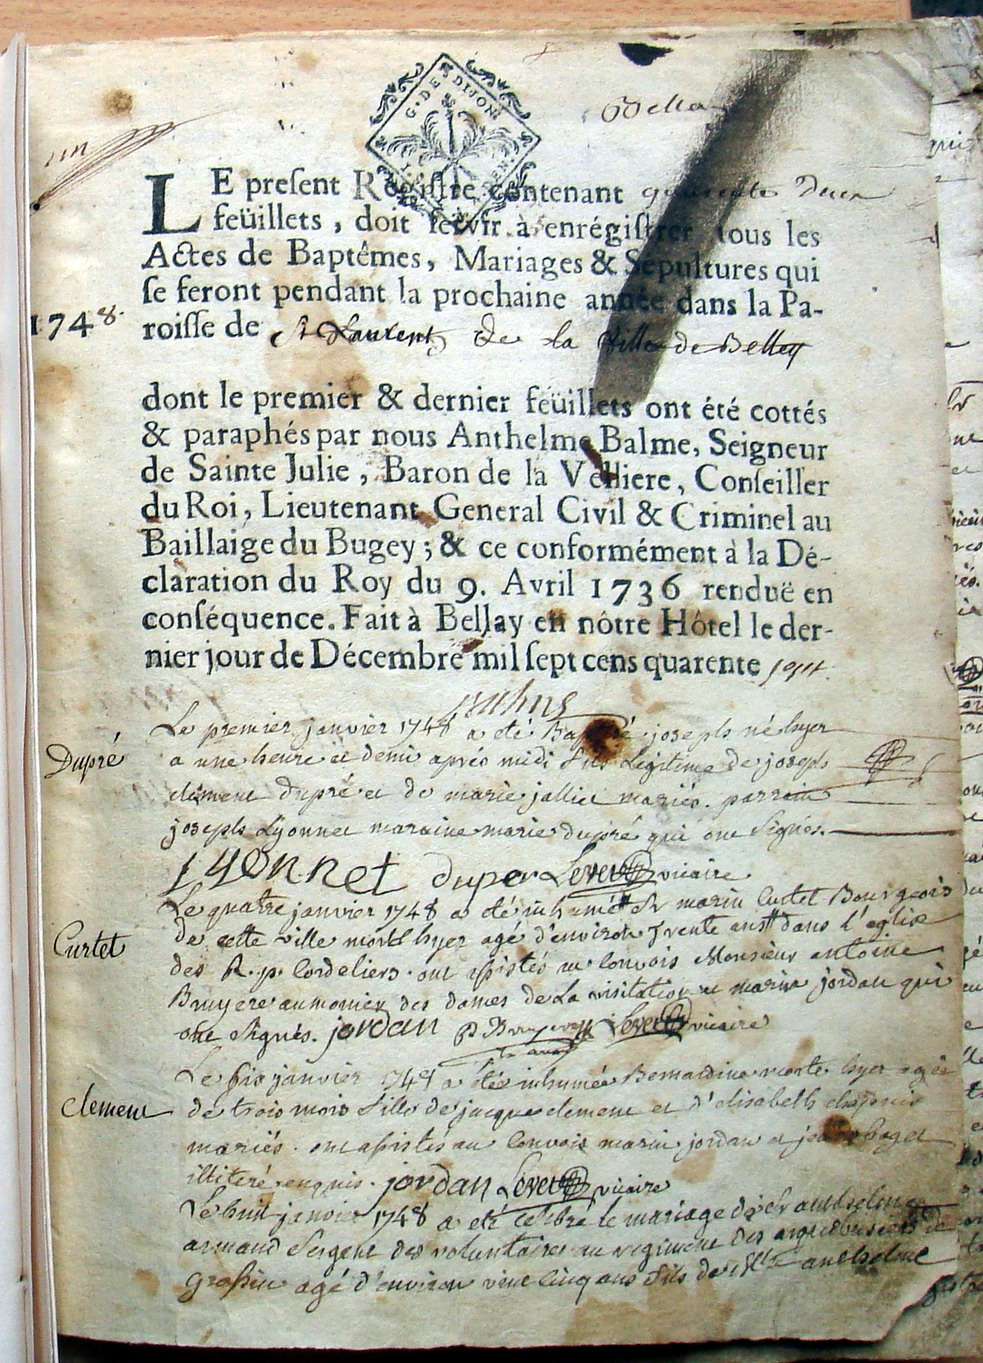 G. DE DIJON
Bella
LE preſent Regiſtre contenant quarente deux
feüillets, doit ſervir à enrégiſtrer tous les
Actes de Baptêmes, Mariages & Sépultures qui
ſe feront pendant la prochaine année dans la Pa-
1748. roiſſe de St Laurent de la Ville de Belley
dont le premier & dernier feüillets ont été cottés
& paraphés par nous Anthelme Balme, Seigneur
de Sainte Julie, Baron de la Velliere, Conſeiller
du Roi, Lieutenant General Civil & Criminel au
Baillaige du Bugey; & ce conformément à la Dé-
claration du Roy du 9. Avril 1736 renduë en
conſéquence. Fait à Bellay en nôtre Hôtel le der-
nier jour de Décembre mil ſept cens quarente sept.
Le premier janvier 1748 a eté Baptisé joseph né hyer
Dupré
a une heure et demi aprés midi fils Legitime de joseph
clement dupré et de marie jallier mariés. parrain
joseph Lyonnet maraine marie dupré qui ont signés.
lyonnet duper Levet vicaire
Le quatre janvier 1748 a eté inhumé Sr marin Curtet Bourgeois
Curtet
de cette ville mort hyer agé d'environ trente ans dans l'eglise
des R. p. Cordeliers. ont assistés au Convois Monsieur antoine
Bruyere aumonier des dames de La visitation et marin jordan qui
ont signés. jordan P. Bruyere Levet vicaire
Le six janvier 1748 a été inhumée Bernardine morte hyer agée
Clement
de trois mois fille de jacque clement et d'elisabeth
mariés. ont assistés au Convois marin jordan et
illiteré enquis. jordan Levet vicaire
Le huit janvier 1748 a eté celebré le mariage de Sr anthelme
armand Sergent des volontaires au regiment des arquebusiers de
Grassin agé d'environ vint cinq ans fils de anthelme